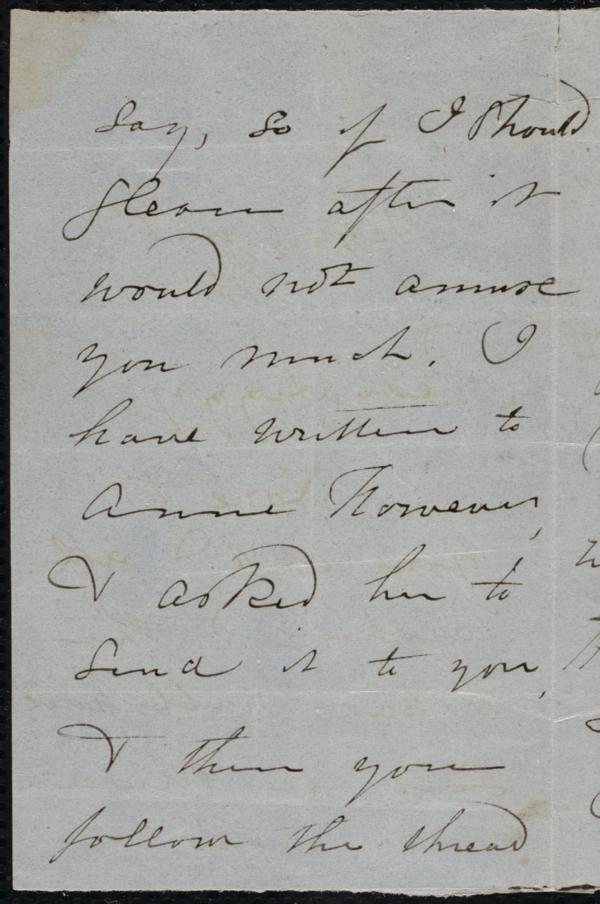 say, so if I should
glean after it
would not amuse
you much. I
have written to
Anne however,
& asked her to
send it to you,
& then you
follow the thread